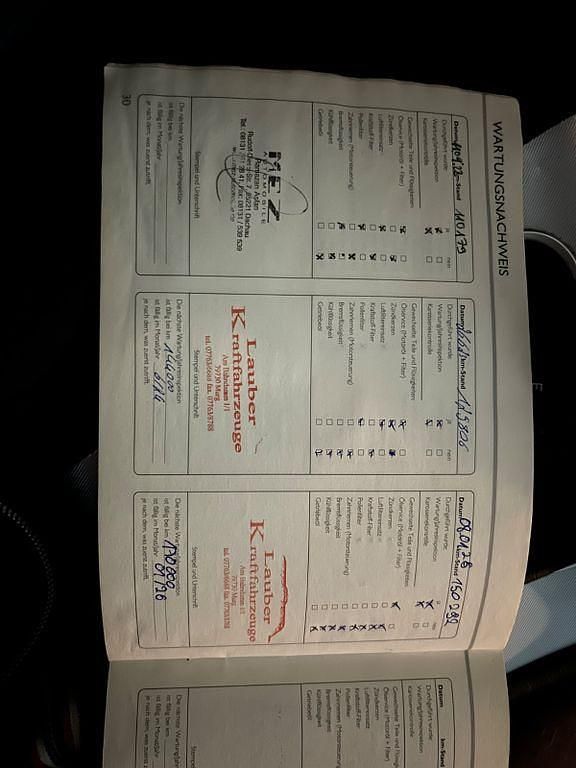 WARTUNGSNACHWEIS
Datum km-Stand 110179
Durchgeführt wurde: ja nein
Wartung/Jahresinspektion
Karosseriekontrolle
Gewechselte Teile und Flüssigkeiten
Ölservice (Motoröl + Filter)
Zündkerzen
Luftfiltereinsatz
Kraftstoff-Filter
Pollenfilter
Zahnriemen (Motorsteuerung)
Bremsflüssigkeit
Kühlflüssigkeit
Getriebeöl
MEZ
AUTOMOBILE
Ramazan Aslan
Rudolf-Diesel-Str. 7, 85221 Dachau
Stempel und Unterschrift
Die nächste Wartung/Jahresinspektion
ist fällig bei km:
ist fällig im Monat/Jahr:
je nach dem, was zuerst zutrifft.
30
Datum km-Stand
Durchgeführt wurde: ja nein
Wartung/Jahresinspektion
Karosseriekontrolle
Gewechselte Teile und Flüssigkeiten
Ölservice (Motoröl + Filter)
Zündkerzen
Luftfiltereinsatz
Kraftstoff-Filter
Pollenfilter
Zahnriemen (Motorsteuerung)
Bremsflüssigkeit
Kühlflüssigkeit
Getriebeöl
Lauber
Kraftfahrzeuge
79730 Murg
tel. 07763/6668 fax. 07763/8788
Stempel und Unterschrift
Die nächste Wartung/Jahresinspektion
ist fällig bei km:
ist fällig im Monat/Jahr:
je nach dem, was zuerst zutrifft.
Datum 08.01.25 km-Stand 150292
Durchgeführt wurde: ja nein
Wartung/Jahresinspektion
Karosseriekontrolle
Gewechselte Teile und Flüssigkeiten
Ölservice (Motoröl + Filter)
Zündkerzen
Luftfiltereinsatz
Kraftstoff-Filter
Pollenfilter
Zahnriemen (Motorsteuerung)
Bremsflüssigkeit
Kühlflüssigkeit
Getriebeöl
Lauber
Kraftfahrzeuge
79730 Murg
tel. 07763/6668 fax. 07763/8788
Stempel und Unterschrift
Die nächste Wartung/Jahresinspektion
ist fällig bei km: 170000
ist fällig im Monat/Jahr: 01/26
je nach dem, was zuerst zutrifft.
Datum km-Stand
Durchgeführt wurde:
Wartung/Jahresinspektion
Karosseriekontrolle
Gewechselte Teile und Flüss
Ölservice (Motoröl + Filter)
Zündkerzen
Luftfiltereinsatz
Kraftstoff-Filter
Pollenfilter
Zahnriemen (Motorsteuerun
Bremsflüssigkeit
Kühlflüssigkeit
Getriebeöl
Stempel
Die nächste Wartung/Jahresin
ist fällig bei km:
ist fällig im Monat/Jahr:
je nach dem, was zuerst z